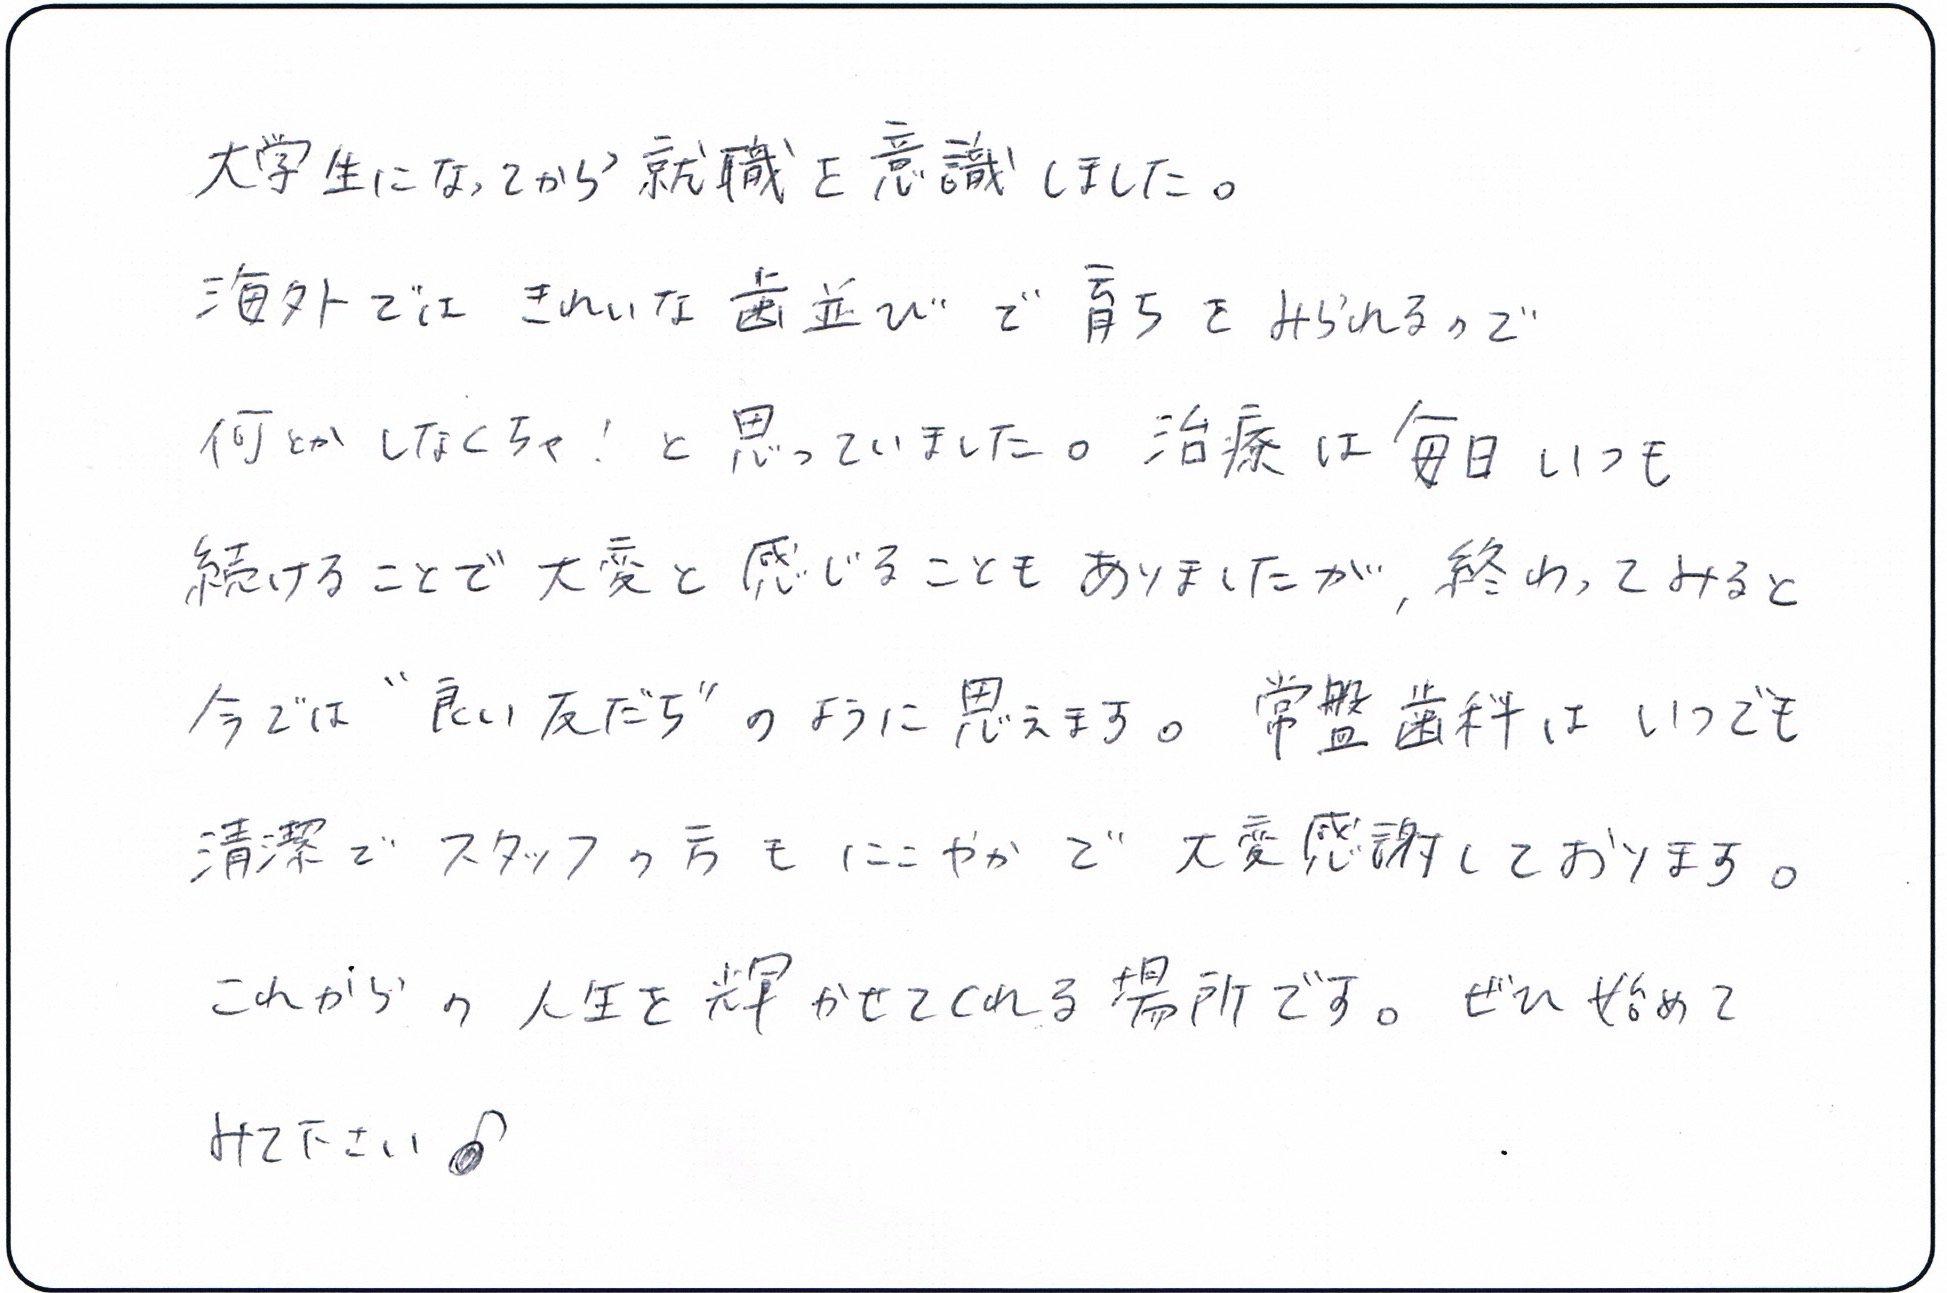 大学生になってから就職を意識しました。
海外では きれいな歯並びで育ちをみられるので
何とかしなくちゃ！と思っていました。治療は毎日いつも
続けることで大変と感じることもありましたが,終わってみると
今では“良い友だち”のように思えます。常盤歯科はいつでも
清潔でスタッフの方もにこやかで大変感謝しております。
これからの人生を輝かせてくれる場所です。ぜひ始めて
みて下さい♪